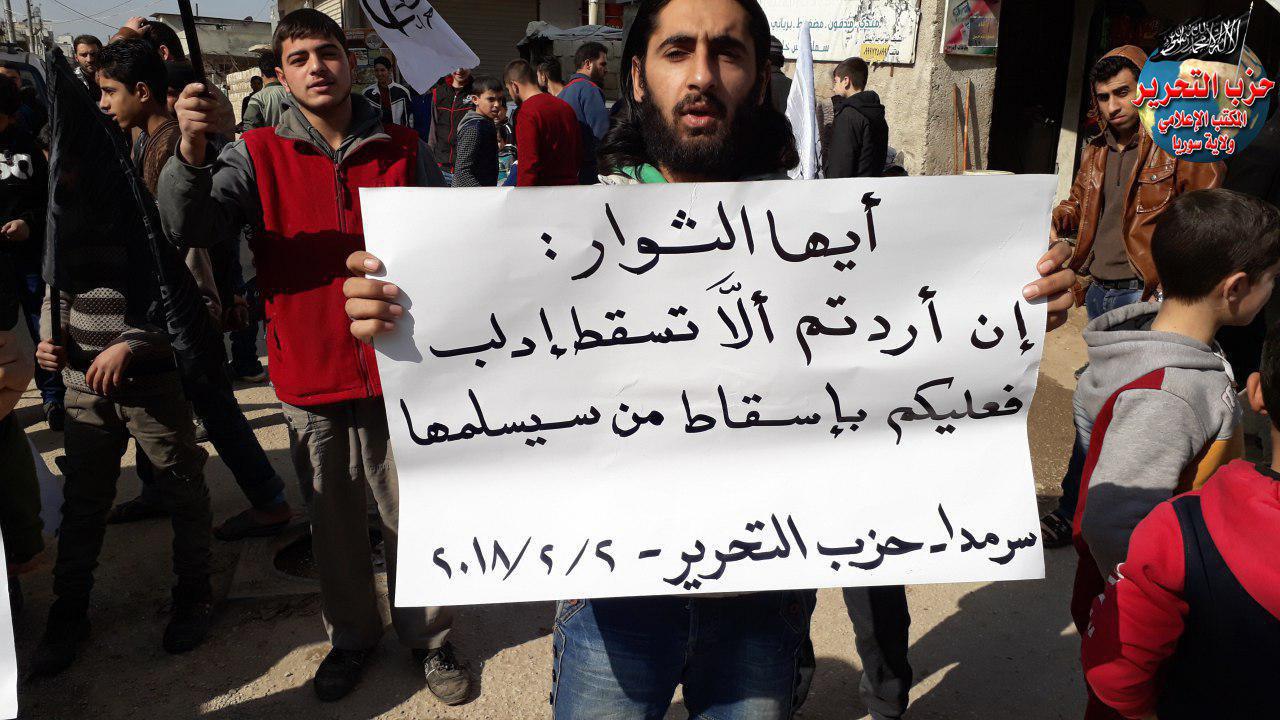 أيها الثوار :
إن أردتم ألاَّ تسقط إدلب
فعليكم بإسقاط من سيسلمها
سرمدا - حزب التحرير - ٢/٢/٢٠١٨
حزب التحرير
المكتب الإعلامي
ولاية سوريا
لا إله إلا الله محمد رسول الله